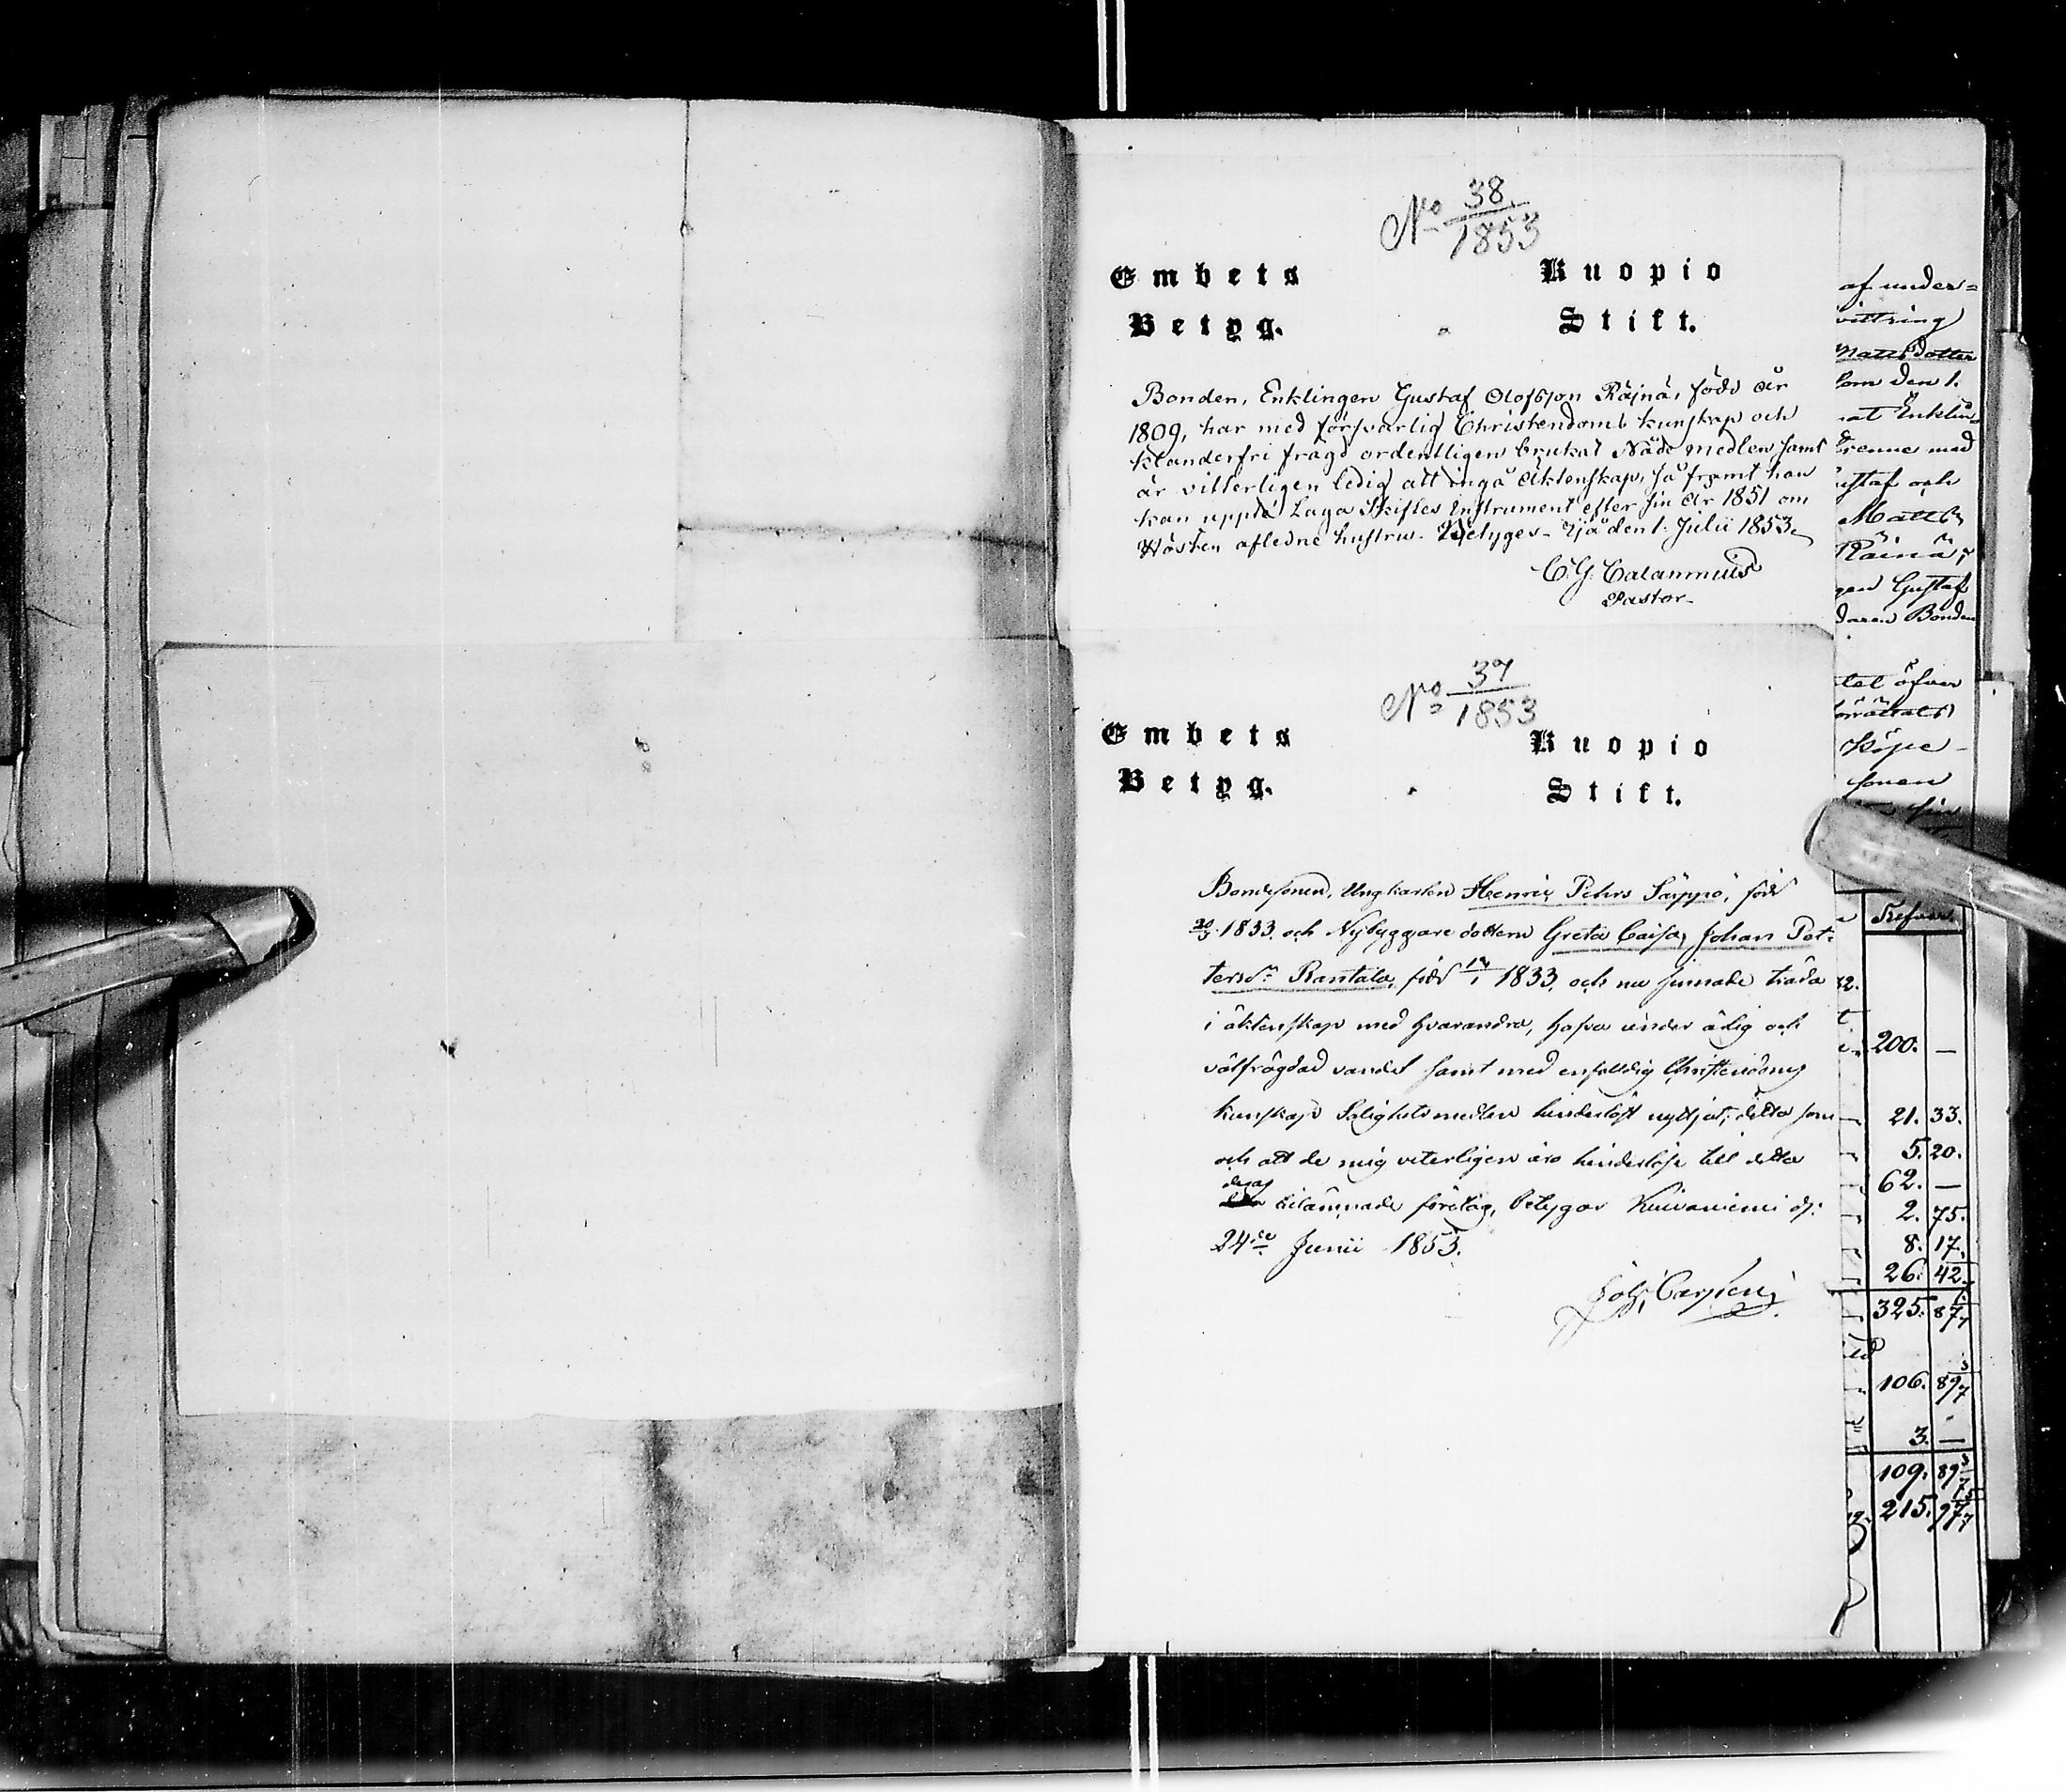 No 38
1853
Embets Kuopio
Betyg. Stift.
Bonden, Enklingen Gustaf Olofsson Räinä, född år
1809, har med försvarlig Christendoms kunskap och
klanderfri frägd ordentligen brukat Nåde medlen samt
är vitterligen ledig att ingå äktenskap, så framt han
kan uppte Laga Skiftes Instrument efter sin år 1851 om
Hösten afledne hustru. Betyges. Ijå den 1. Julii 1853.
C. G. Calamnius
Pastor.
No 37
1853
Embets Kuopio
Betyg. Stift.
Bondesonen, Ungkarlen Henric Pehrs Säppä, född
1833. och Nybyggare dottern Greta Caisa Johan Pet-
tersdr Rantala, född 1833, och nu sinnade träda
i äktenskap med hvarandra, hafva under ärlig och
välfrägdad vandel samt med enfaldig Christendoms
kunskap Salighets medlen hinderlöst nyttjat; detta som
och att de mig veterligen äro hinderlöse till detta
deras företag, betygar Kuivaniemi
24de Junii 1853.
Joh. Castrén
af under=
vittring
Mattsdotter
som den 1.
at Enklin=
trenne med
ustaf och
Matts
Räinä,
gen Gustaf
daren Bonden
tet öfver
örrättats
Köpe
sonen
sin
32.
200. —
21. 33.
5. 20.
62. —
2. 75.
8. 17.
26. 42.
325. 87
106. 89
3. —
109. 89
215. 97